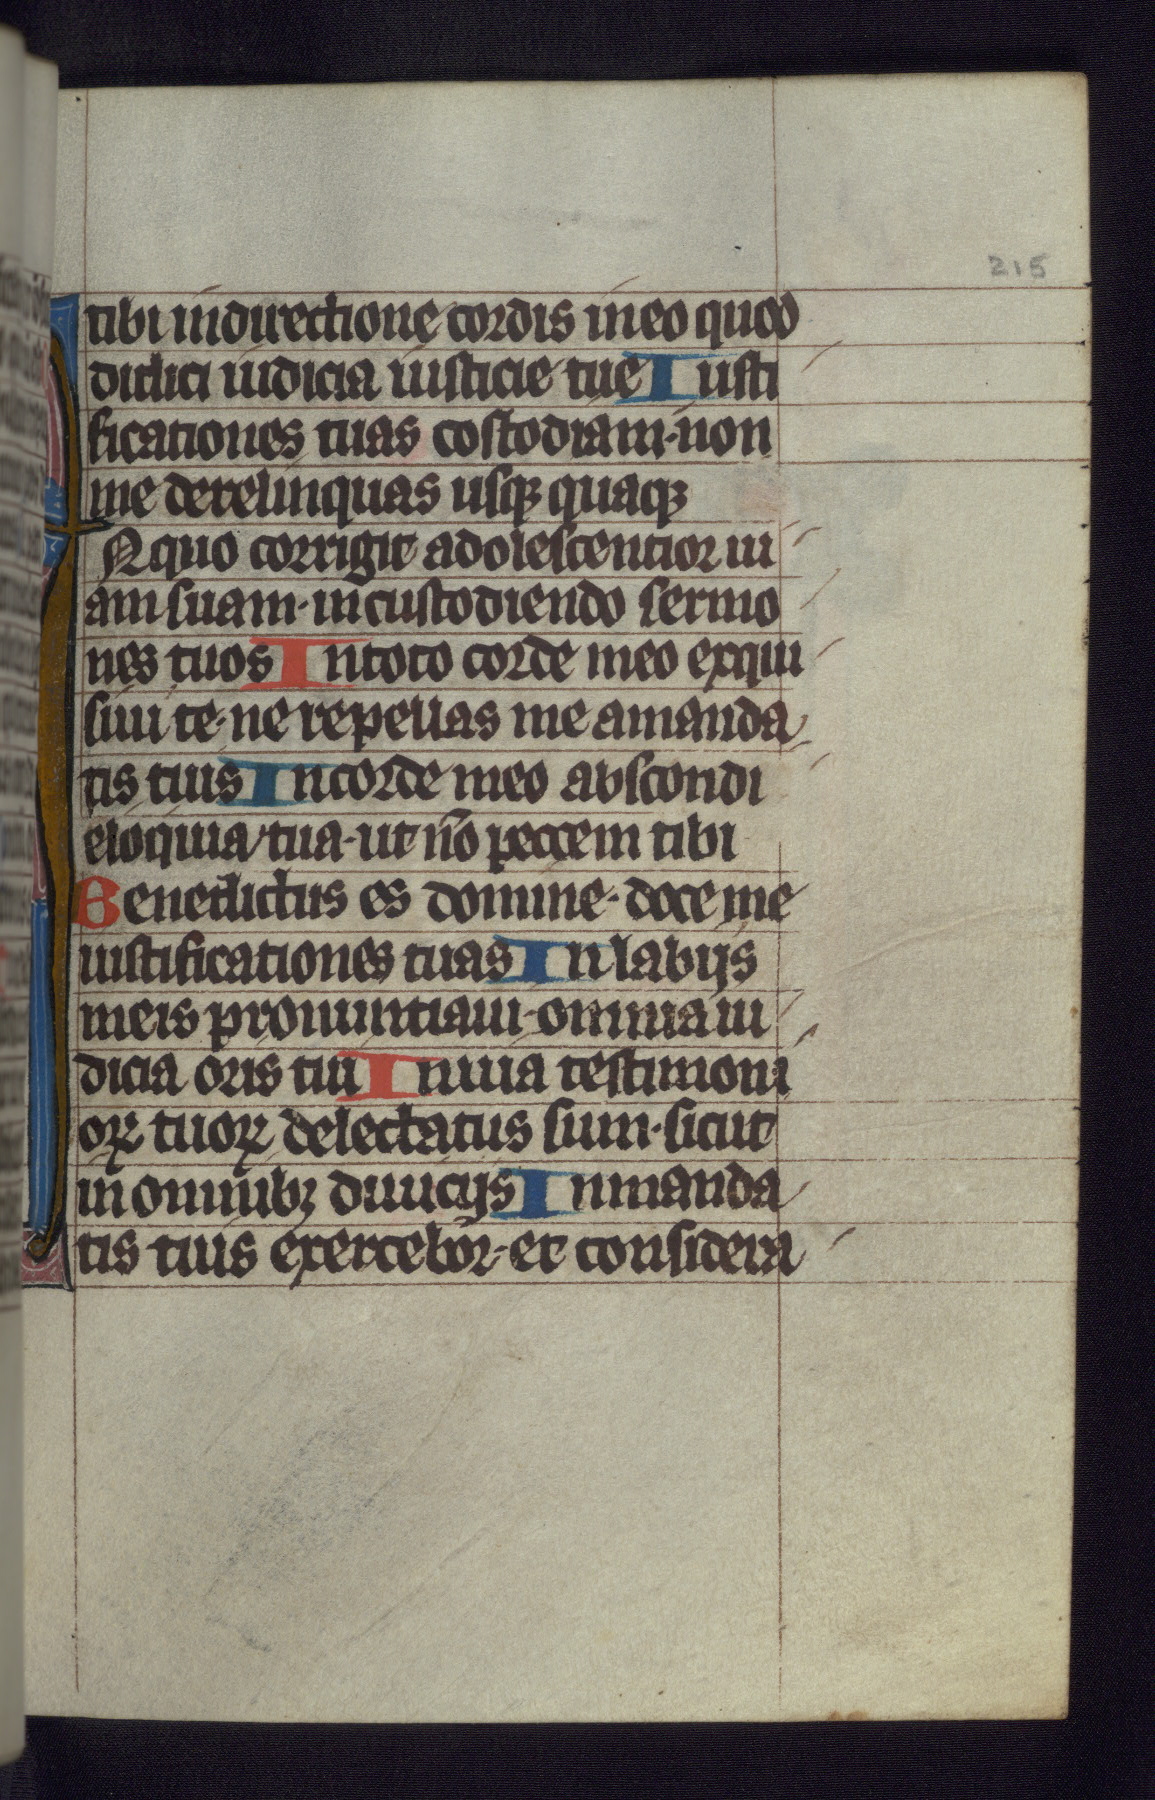 215
tibi in directione cordis meo quod
didici iudicia iusticie tue Iusti
ficationes tuas costodiam·non
me derelinquas usqꝫ quaqꝫ
N quo corrigit adolescentior ui
am suam·in custodiendo sermo
nes tuos In toto corde meo exqui
siui te·ne repellas me amanda
tis tuis In corde meo abscondi
eloquia tua·ut nō peccem tibi
Benedictus es domine·doce me
iustificationes tuas In labijs
meis pronuntiaui·omnia iu
dicia oris tui In uia testimoni
oꝝ tuoꝝ delectatus sum·sicut
in omnibꝫ diuicijs In manda
tis tuis exercebor·et considera